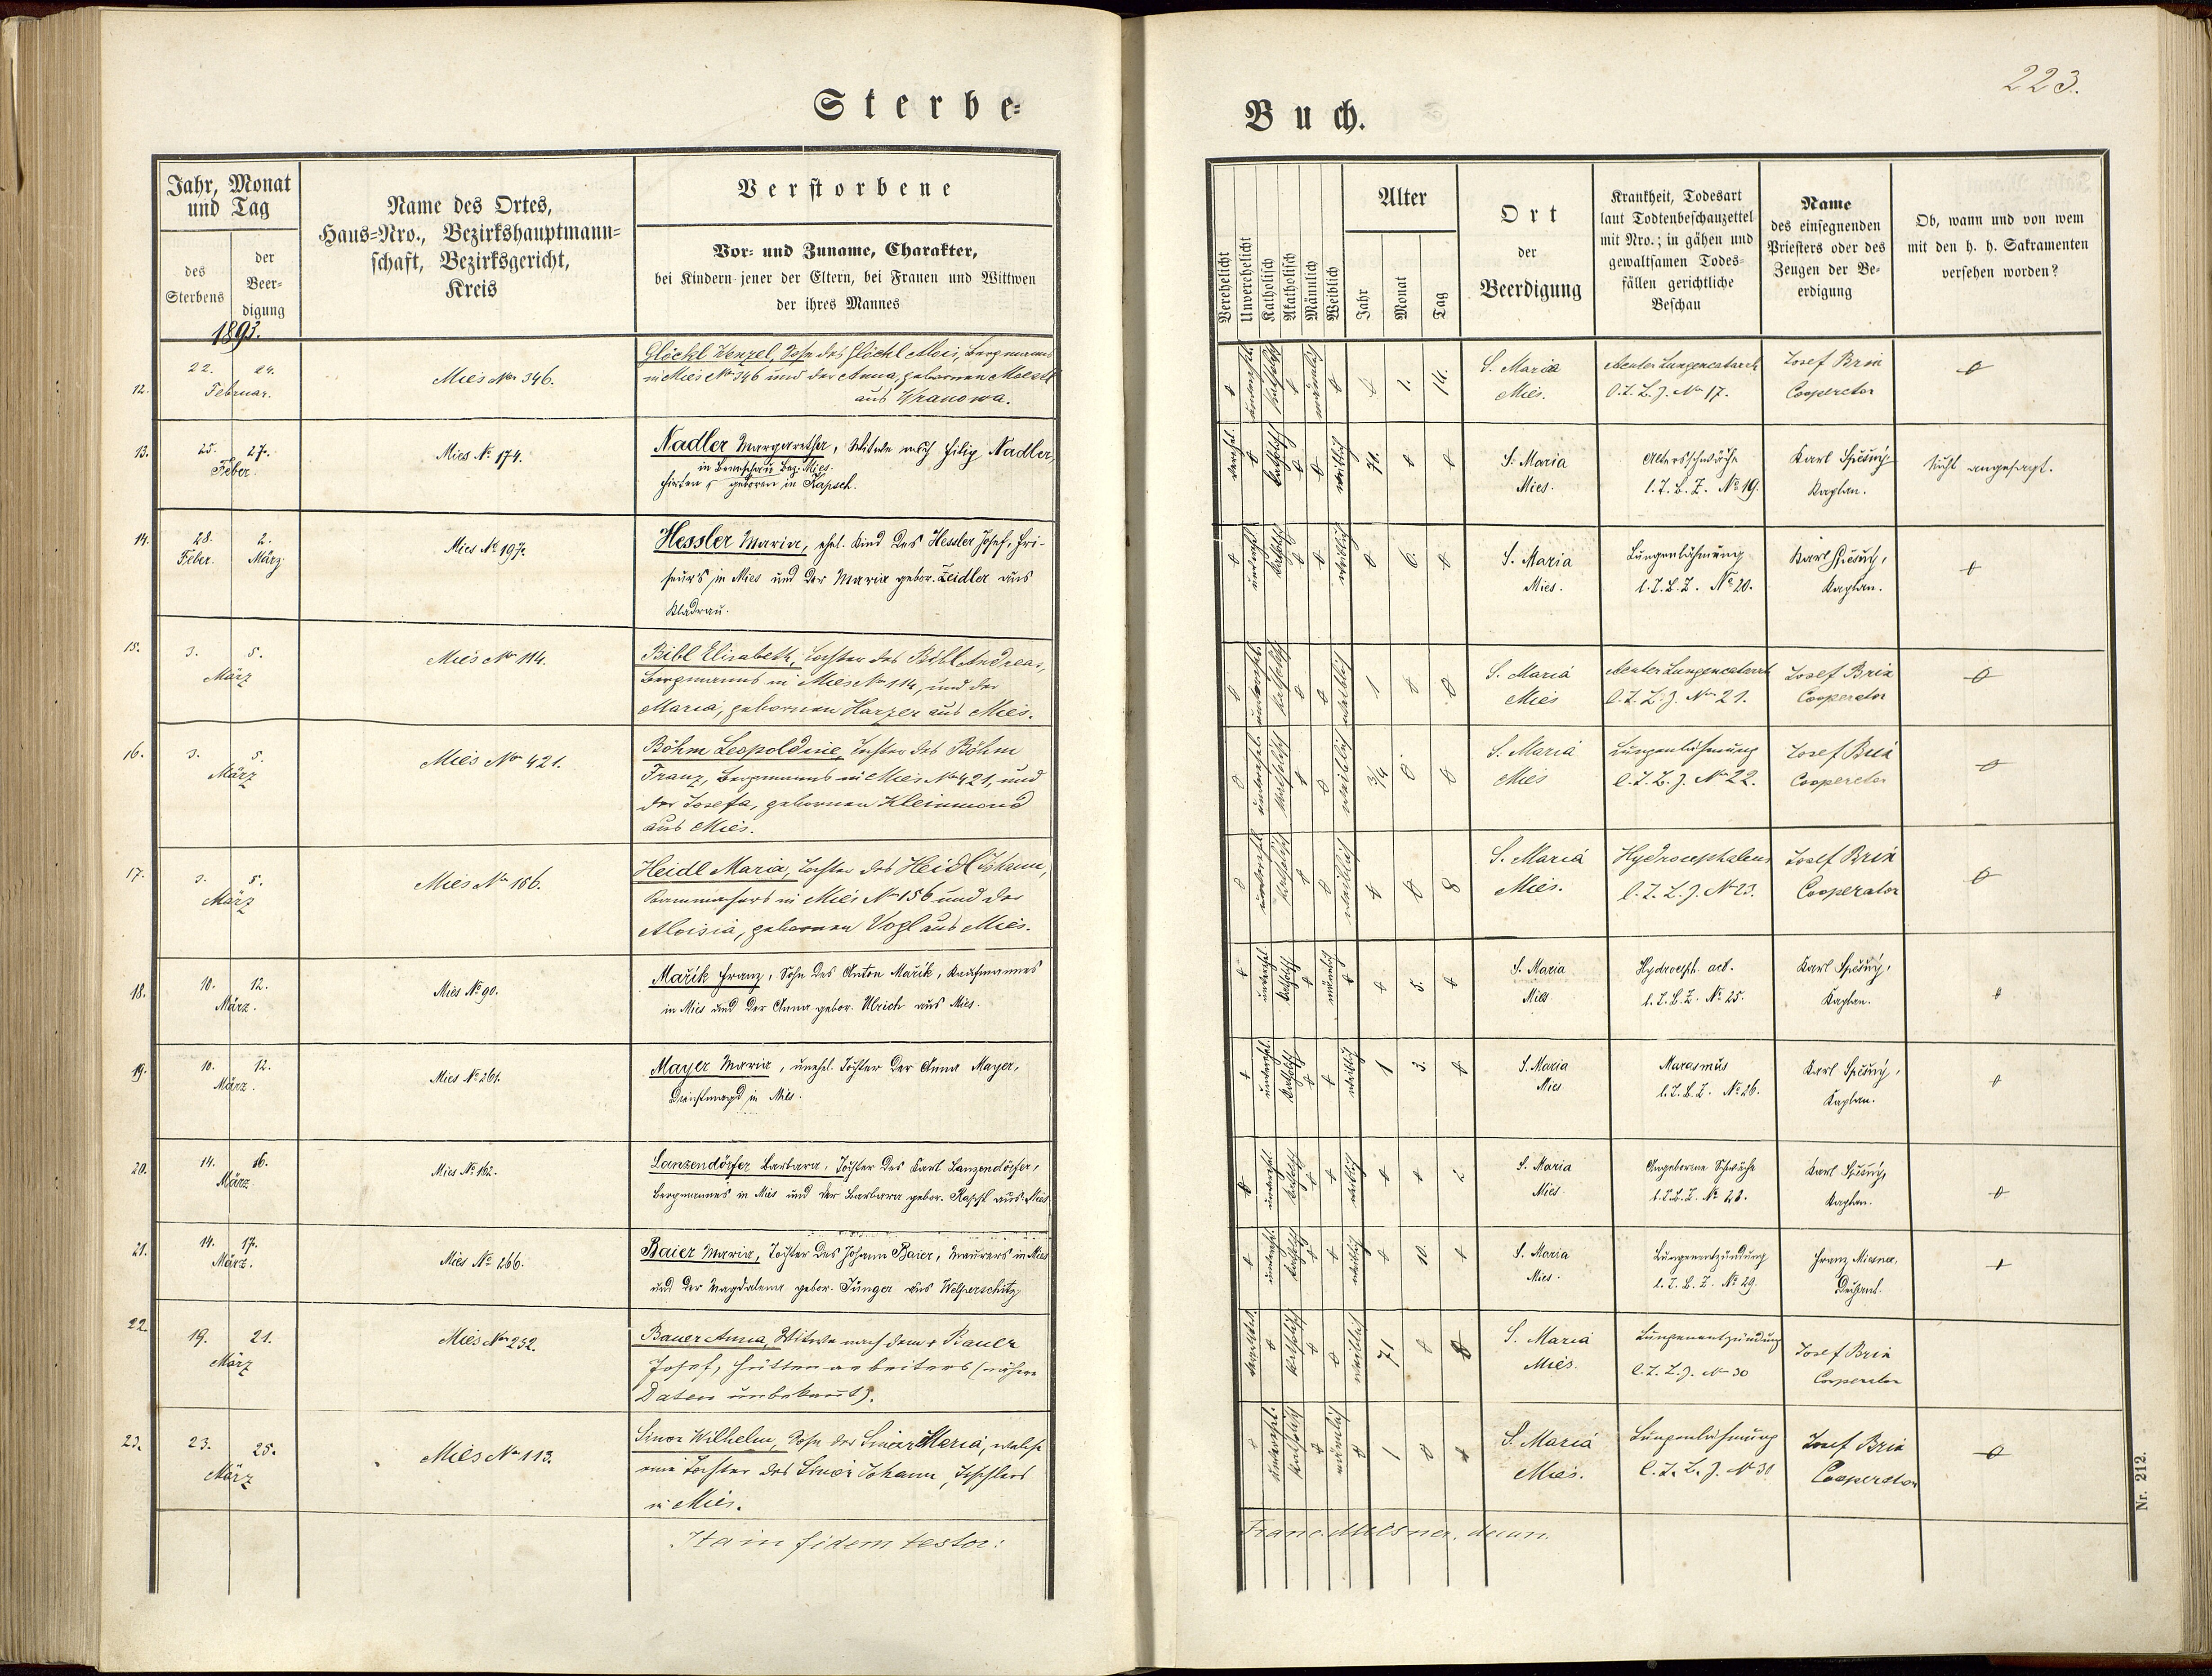 223.
Sterbe=
Buch.
Jahr, Monat und Tag
des Sterbens
der Beerdigung
Name des Ortes,
Haus=Nro., Bezirkshauptmann=
schaft, Bezirksgericht,
Kreis
Verstorbene
Vor= und Zuname, Charakter,
bei Kindern jener der Eltern, bei Frauen und Wittwen
der ihres Mannes
Verehelicht
Unverehelicht
Katholisch
Akatholisch
Männlich
Weiblich
Alter
Jahr
Monat
Tag
Ort
der
Beerdigung
Krankheit, Todesart
laut Todtenbeschauzettel
mit Nro.; in gähen und
gewaltsamen Todes=
fällen gerichtliche
Beschau
Name
des einsegnenden
Priesters oder des
Zeugen der Be=
erdigung
Ob, wann und von wem
mit den h. h. Sakramenten
versehen worden?
1893.
12.
22. 24.
Februar.
Mies Nr 346.
Glöckl Wenzel, Sohn des Glöckl Alois, Bergmanns
in Mies Nr 346 und der Anna, gebornen
aus Wranowa.
1. 14.
S. Maria
Mies.
Acuter Lungencatarrh
l. T. B. Z. Nr 17.
Josef Brix
Cooperator
13.
25. 27.
Feber.
Mies № 174.
Nadler Margaretha, Witwe nach Filip Nadler,
in Bez. Mies.
Hirten, geboren in Kapsch.
71.
S. Maria
Mies.
Altersschwäche
l. T. B. Z. № 19.
Karl Spěšný
Kaplan.
Nicht angesagt.
14.
28. 2.
Feber. März
Mies № 197.
Hessler Maria, ehel. Kind des Hessler Josef, Fri-
seurs in Mies und der Maria gebor. Zeidler aus
Kladrau.
6.
S. Maria
Mies.
Lungenlähmung
l. T. B. Z. № 20.
Karl Spěšný,
Kaplan.
15.
3. 5.
März
Mies Nr 114.
Bibl Elisabeth, Tochter des Bibl Andreas,
Bergmanns in Mies Nr 114, und der
Maria, gebornen Harzer aus Mies.
1
S. Maria
Mies
Acuter Lungencatarrh
l. T. B. Z. Nr 21.
Josef Brix
Cooperator
16.
3. 5.
März
Mies Nr 421.
Böhm Leopoldine, Tochter des Böhm
Franz, Bergmanns in Mies Nr 421, und
der Josefa, gebornen Kleinmond
aus Mies.
3/4
S. Maria
Mies
Lungenlähmung
l. T. B. Z. Nr 22.
Josef Brix
Cooperator
17.
3. 5.
März
Mies Nr 156.
Heidl Maria, Tochter des Heidl Johann,
Kammachers in Mies Nr 156 und der
Aloisia, gebornen Vogl aus Mies.
8
S. Maria
Mies.
Hydrocephalus
l. T. B. Z. Nr 23.
Josef Brix
Cooperator
18.
10. 12.
März.
Mies № 90.
Mařík Franz, Sohn des Anton Mařík, Kaufmannes
in Mies und der Anna gebor. Ulrich aus Mies.
5.
S. Maria
Mies.
Hydroceph. act.
l. T. B. Z. № 25.
Karl Spěšný,
Kaplan.
19.
10. 12.
März.
Mies № 261.
Mayer Maria, unehel. Tochter der Anna Mayer,
Dienstmagd in Mies.
1 3.
S. Maria
Mies
Marasmus
l. T. B. Z. № 26.
Karl Spěšný,
Kaplan.
20.
14. 16.
März
Mies № 162.
Lanzendörfer Barbara, Tochter des Karl Lanzendörfer,
Bergmannes in Mies und der Barbara gebor. aus Mies.
2
S. Maria
Mies.
Angeborene Schwäche
l. T. B. Z. № 28.
Karl Spěšný,
Kaplan.
21.
14. 17.
März.
Mies № 266.
Baier Maria, Tochter des Johann Baier, Maurers in Mies
und der Magdalena gebor. Junger aus Welperschitz
10.
S. Maria
Mies.
Lungenentzündung
l. T. B. Z. № 29.
Franz Miesner,
Dechant.
22.
19. 21.
März
Mies Nr 252.
Bauer Anna, Witwe nach dem + Bauer
Josef, Hüttenarbeiters (nähere
Daten unbekannt).
71
S. Maria
Mies.
Lungenentzündung
l. T. B. Z. Nr 30
Josef Brix
Cooperator
23.
23. 25.
März
Mies Nr 113.
Wilhelm, Sohn der Maria, welche
eine Tochter des Johann, Tischlers
in Mies.
1
S. Maria
Mies.
Lungenlähmung
l. T. B. Z. Nr 30
Josef Brix
Cooperator
Ita in fidem testor:
Franc. Miesner, decan.
Nr. 212.